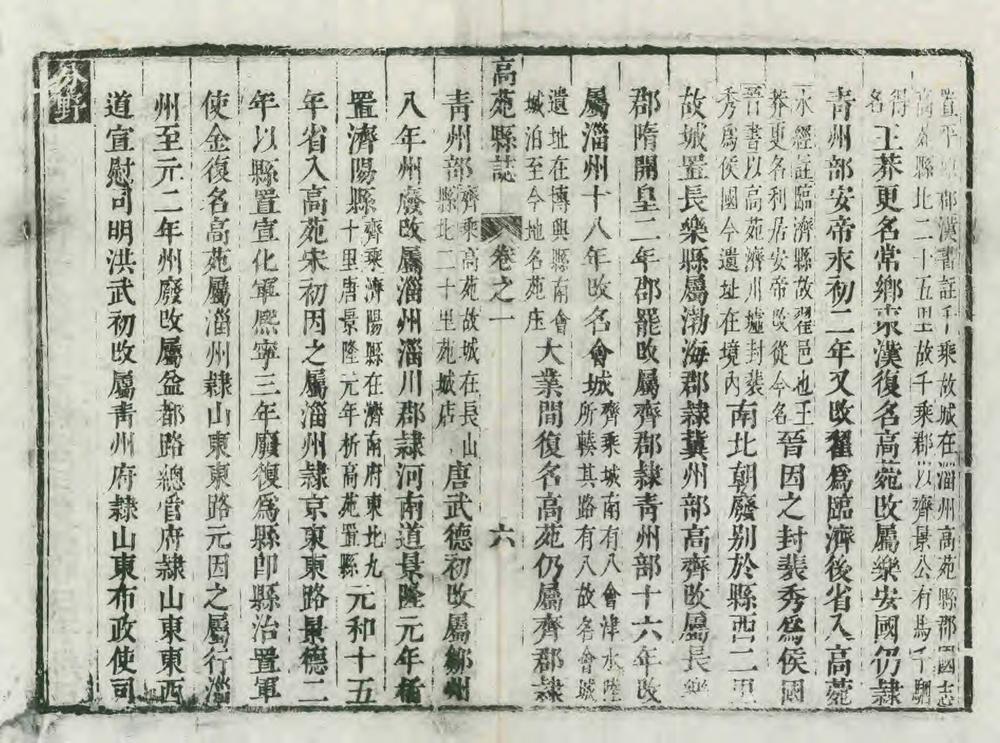 置平原郡漢書註千乘故城在淄州高苑縣郡國志
高苑縣北二十五里故千乘郡以齊景公有馬千駟
得名王莽更名常鄉東漢復名高菀改屬樂安國仍隸
青州部安帝永初二年又改翟爲臨濟後省入高菀
水經註臨濟縣故翟邑也王
莽更名利居安帝改從今名晉因之封裴秀爲侯國
晉書以高苑濟川墟封裴
秀爲侯國今遺址在境內南北朝廢別於縣西二里
故城置長樂縣屬渤海郡隸冀州部高齊改屬長樂
郡隋開皇二年郡罷改屬齊郡隸青州部十六年改
屬淄州十八年改名會城齊乘城南有八會津水陸
所輳其路有八故名會城
遺址在博興縣南會
城泊至今地名苑庄大業間復名高苑仍屬齊郡隸
高苑縣誌 卷之一 六
青州部齊乘高苑故城在長山
縣北二十里苑城店唐武德初改屬鄒州
八年州廢改屬淄州淄川郡隸河南道景隆元年析
置濟陽縣齊乘濟陽縣在濟南府東北九
十里唐景隆元年析高苑置縣元和十五
年省入高苑宋初因之屬淄州隸京東東路景德二
年以縣置宣化軍熙寧三年廢復爲縣卽縣治置軍
使金復名高苑屬淄州隸山東東路元因之屬行淄
州至元二年州廢改屬益都路總管府隸山東東西
道宣慰司明洪武初改屬青州府隸山東布政使司
分野